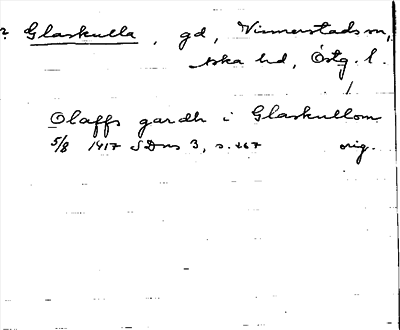 ? Glaskulla, gd, Vinnerstads sn,
Aska hd, Östg. l.
Olaffs gardh i Glaskullom
5/8 1417 SDns 3, s. 267 orig.